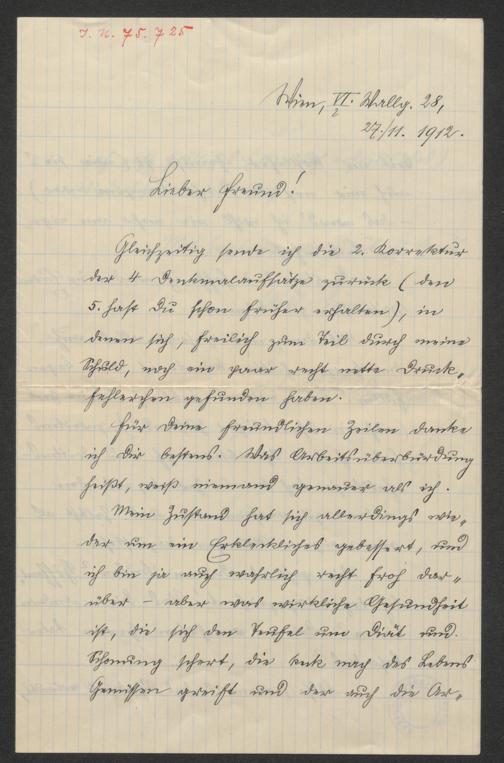 I. N. 75.725
Wien, VI/2 Wallg. 28,
27./11. 1912.
Lieber Freund!
Gleichzeitig sende ich die 2. Korrektur
der 4 Denkmalaufsätze zurück (den
5. hast Du schon früher erhalten), in
denen sich, freilich zum Teil durch meine
Schuld, noch ein paar recht nette Druck-
fehlerchen gefunden haben.
Für Deine freundlichen Zeilen danke
ich Dir bestens. Was Arbeitsüberbürdung
heißt, weiß niemand genauer als ich.
Mein Zustand hat sich allerdings wie-
der um ein Erkleckliches gebessert, und
ich bin ja auch wahrlich recht froh dar-
über – aber was wirkliche Gesundheit
ist, die sich den Teufel um Diät und
Schonung schert, die keck nach des Lebens
Genüssen greift und der auch die Ar-